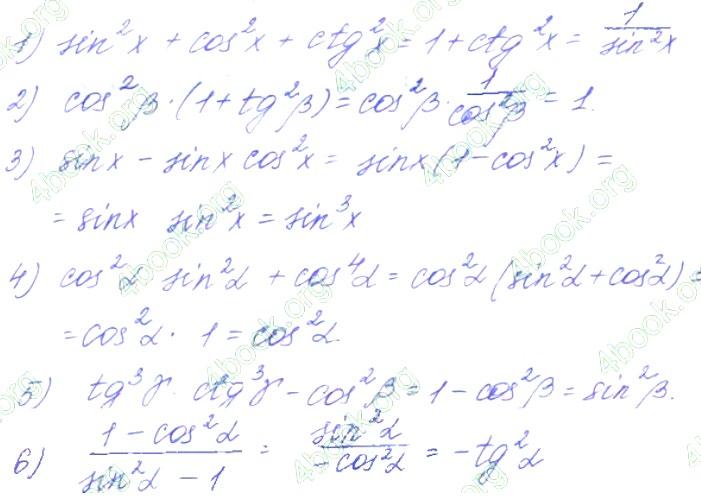 1) sin²x + cos²x + ctg²x = 1 + ctg²x = 1/sin²x
2) cos²β · (1 + tg²β) = cos²β · 1/cos²β = 1.
3) sinx − sinx cos²x = sinx (1 − cos²x) =
= sinx sin²x = sin³x
4) cos²α sin²α + cos⁴α = cos²α (sin²α + cos²α) =
= cos²α · 1 = cos²α.
5) tg³γ · ctg³γ − cos²β = 1 − cos²β = sin²β.
6) (1 − cos²α)/(sin²α − 1) = sin²α/(−cos²α) = −tg²α
4book.org
4book.org
4book.org
4book.org
4book.org
4book.org
4book.org